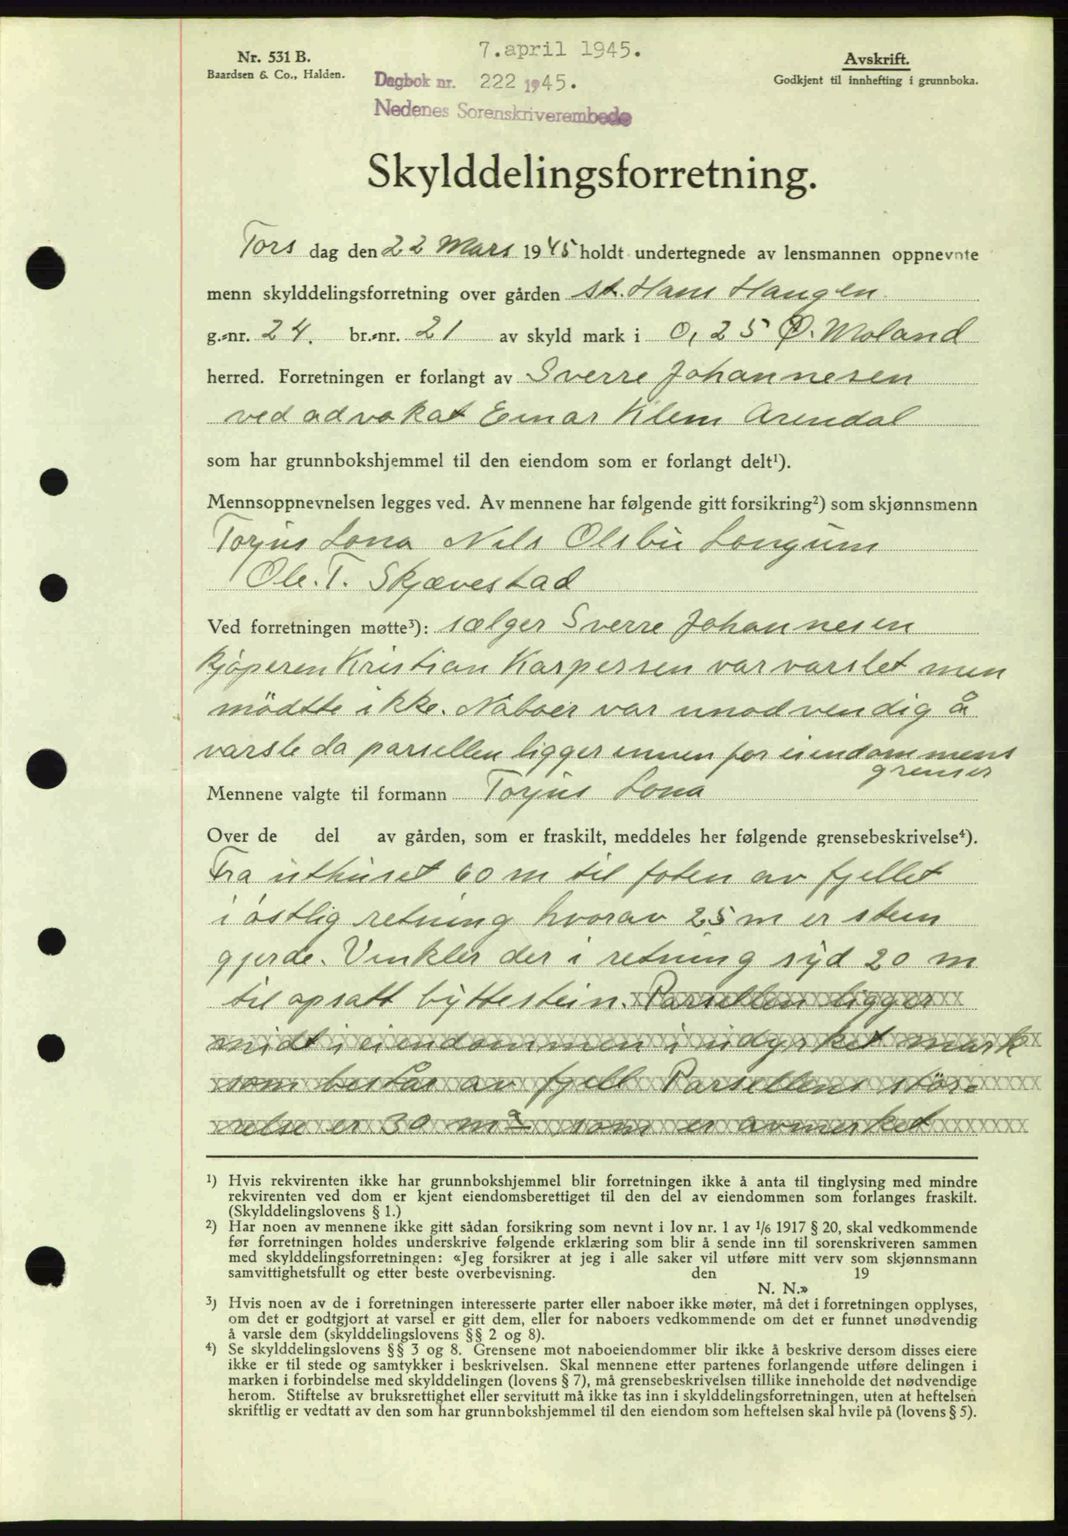 Nr. 531 B.
Baardsen & Co., Halden.
7.april 1945.
Dagbok nr. 222 1945.
Nedenes Sorenskriverembede
Avskrift.
Godkjent til innhefting i grunnboka.
Skylddelingsforretning.
Tors dag den 22 Mars 1945 holdt undertegnede av lensmannen oppnevnte
menn skylddelingsforretning over gården St. Hans Haugen
g.-nr. 24. br.-nr. 21 av skyld mark i 0,25 Ø. Moland
herred. Forretningen er forlangt av Sverre Johannesen
ved advokat Einar Klem Arendal
som har grunnbokshjemmel til den eiendom som er forlangt delt¹).
Mennsoppnevnelsen legges ved. Av mennene har følgende gitt forsikring²) som skjønnsmenn
Torjus Lona Nils Olsbu Longum
Ole. T. Skjævestad
Ved forretningen møtte³): sælger Sverre Johannesen
kjøperen Kristian Karpersen var varslet men
mödtte ikke. Naboer var unodvendig å
varsle da parsellen ligger innen for eiendommens
grenser
Mennene valgte til formann Torjus Lona
Over de del av gården, som er fraskilt, meddeles her følgende grensebeskrivelse⁴).
Fra uthuset 60 m til foten av fjellet
i östlig retning hvorav 25 m er stein
gjerde. Vinkler der i retning syd 20 m
til opsatt byttestein. Parsellen ligger
midt i eiendommen i udyrket mark
som består av fjell Parsellens störe
relse er 30 m² som er avmerket
¹) Hvis rekvirenten ikke har grunnbokshjemmel blir forretningen ikke å anta til tinglysing med mindre
rekvirenten ved dom er kjent eiendomsberettiget til den del av eiendommen som forlanges fraskilt.
(Skylddelingslovens § 1.)
²) Har noen av mennene ikke gitt sådan forsikring som nevnt i lov nr. 1 av 1/6 1917 § 20, skal vedkommende
før forretningen holdes underskrive følgende erklæring som blir å sende inn til sorenskriveren sammen
med skylddelingsforretningen: «Jeg forsikrer at jeg i alle saker vil utføre mitt verv som skjønnsmann
samvittighetsfullt og etter beste overbevisning. den 19
N. N.»
³) Hvis noen av de i forretningen interesserte parter eller naboer ikke møter, må det i forretningen opplyses,
om det er godtgjort at varsel er gitt dem, eller for naboers vedkommende om det er funnet unødvendig
å varsle dem (skylddelingslovens §§ 2 og 8).
⁴) Se skylddelingslovens §§ 3 og 8. Grensene mot naboeiendommer blir ikke å beskrive dersom disses eiere
ikke er til stede og samtykker i beskrivelsen. Skal mennene etter partenes forlangende utføre delingen i
marken i forbindelse med skylddelingen (lovens § 7), må grensebeskrivelsen tillike inneholde det nødvendige
herom. Stiftelse av bruksrettighet eller servitutt må ikke tas inn i skylddelingsforretningen, uten at heftelsen
skriftlig er vedtatt av den som har grunnbokshjemmel til den eiendom som heftelsen skal hvile på (lovens § 5).